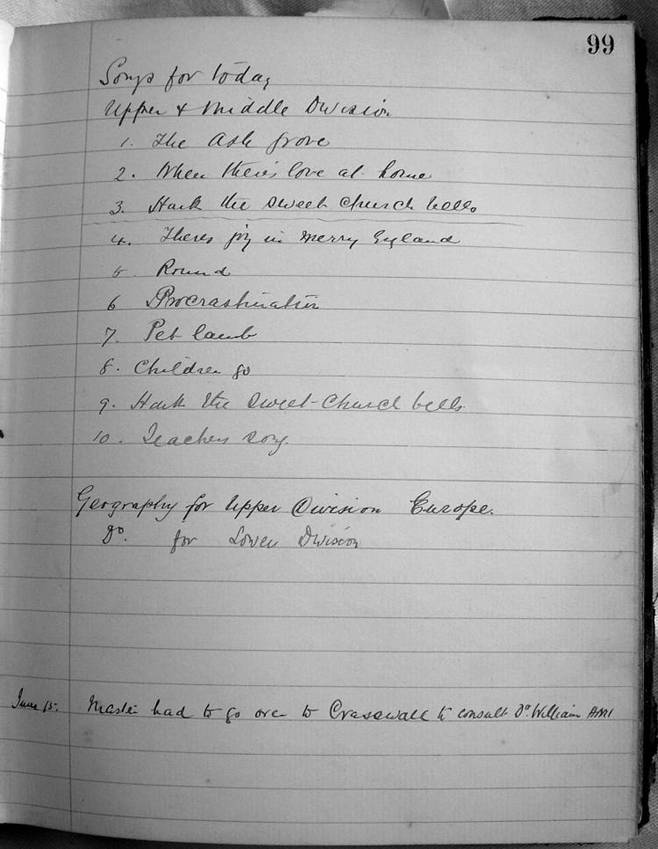 99
Songs for today
Upper & Middle Division
1. The Ash grove
2. When theres love at home
3. Hark the sweet church bells
4. Theres joy in merry England
5 Round
6 Procrastination
7. Pet lamb
8. Children go
9. Hark the sweet church bells
10. Teachers song.
Geography for Upper Division Europe.
Do. for Lower Division
June 15. Master had to go over to Crasswall to consult Dr. William